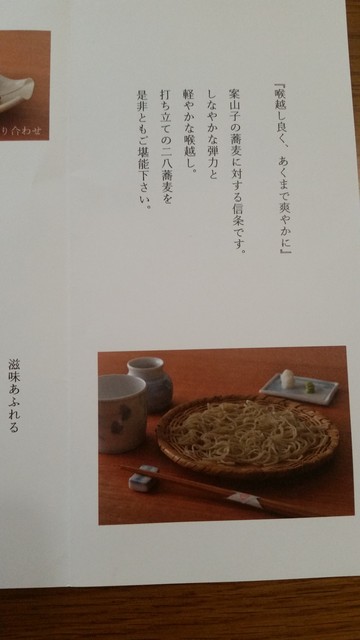 『喉越し良く、あくまで爽やかに』
案山子の蕎麦に対する信条です。
しなやかな弾力と
軽やかな喉越し。
打ち立ての二八蕎麦を
是非ともご堪能下さい。
り合わせ
滋味あふれる